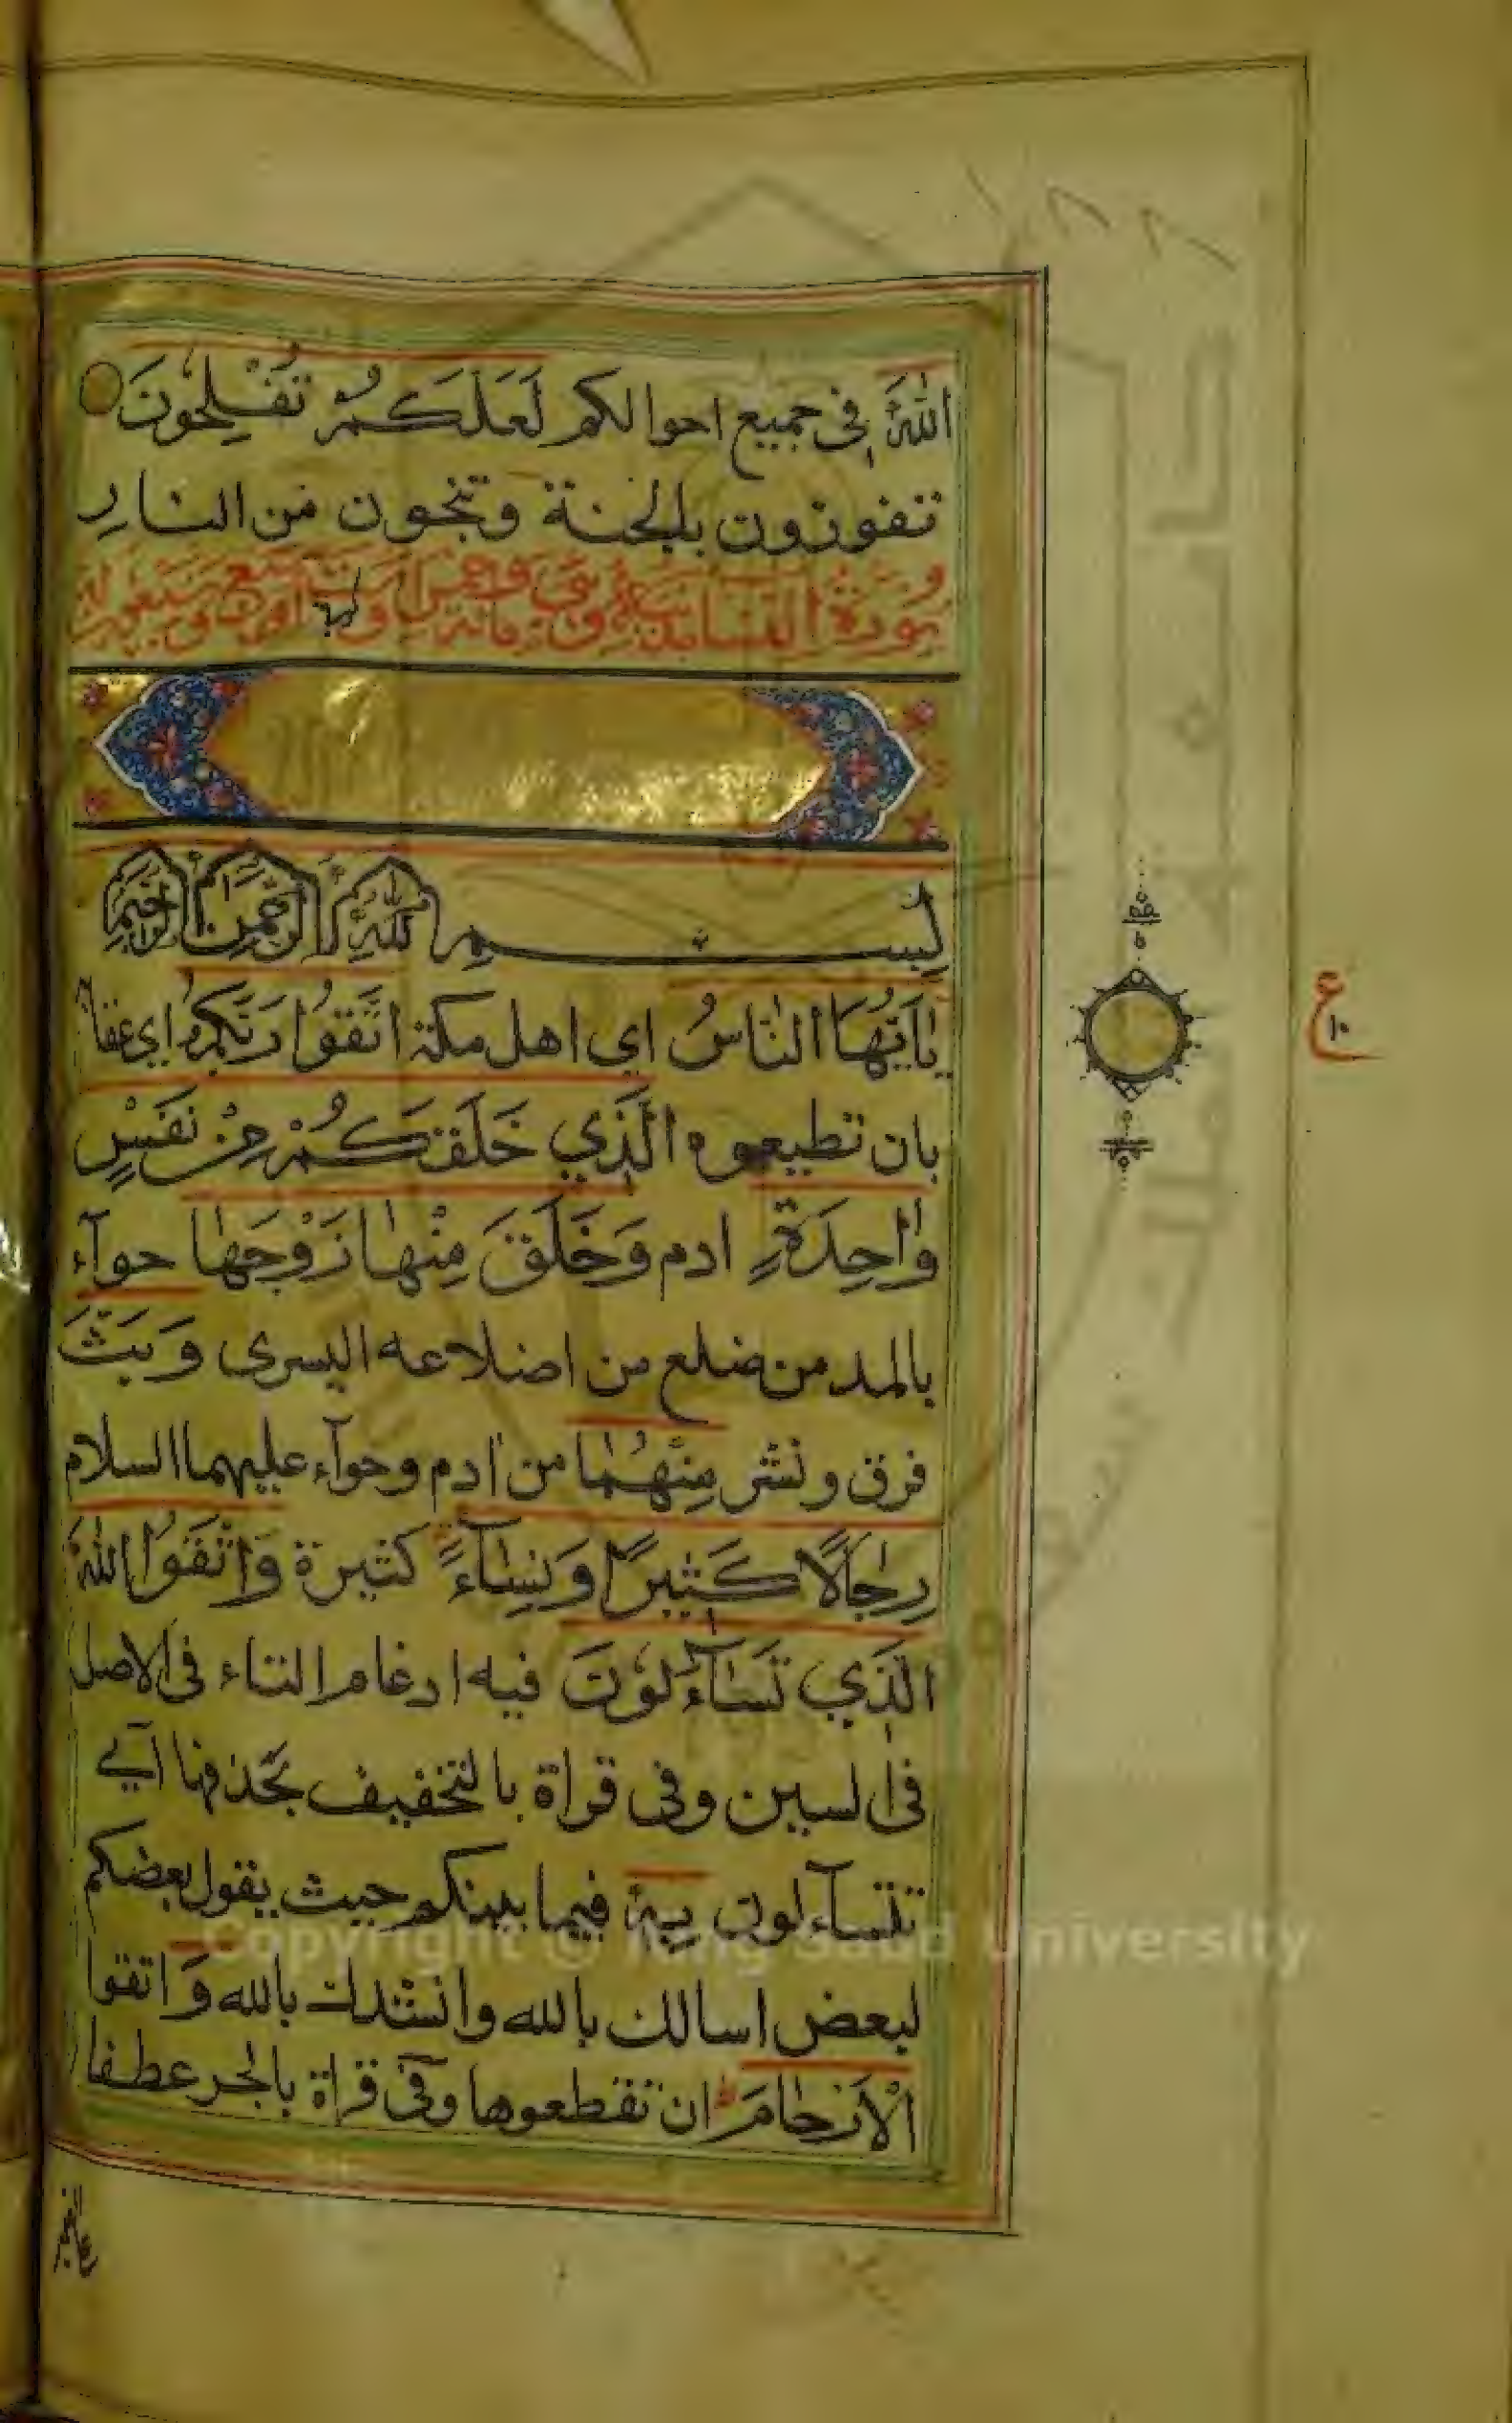 اللهَ في جميع احوالكم لَعَلَّكُمْ تُفْلِحُونَ
تفوزون بالجنة وتنجون من النار
سورة النسا مدنية وهي مائة وخمس او ست او سبع وسبعون اية
بِسْمِ اللهِ الرَّحْمٰنِ الرَّحِيمِ
يٰاَيُّهَا النَّاسُ اي اهل مكة اتَّقُوا رَبَّكُمُ اي عقابه
بان تطيعوه الَّذِي خَلَقَكُمْ مِنْ نَفْسٍ
وٰاحِدَةٍ ادم وَخَلَقَ مِنْهٰا زَوْجَهٰا حوآء
بالمد من ضلع من اضلاعه اليسرى وَبَثَّ
فرق ونشر مِنْهُمٰا من ادم وحوآء عليهما السلام
رِجٰالًا كَثِيرًا وَنِسٰآءً كثيرة وَاتَّقُوا اللهَ
الَّذِي تَسٰآءَلُونَ فيه ادغام التاء في الاصل
في السين وفي قراة بالتخفيف بحذفها اي
تتسآءلون بِهِ فيما بينكم حيث يقول بعضكم
لبعض اسالك بالله وانشدك بالله وَ اتقوا
الْاَرْحٰامَ ان تقطعوها وفي قراة بالجر عطفا
ع
١٠
Copyright © King Saud University